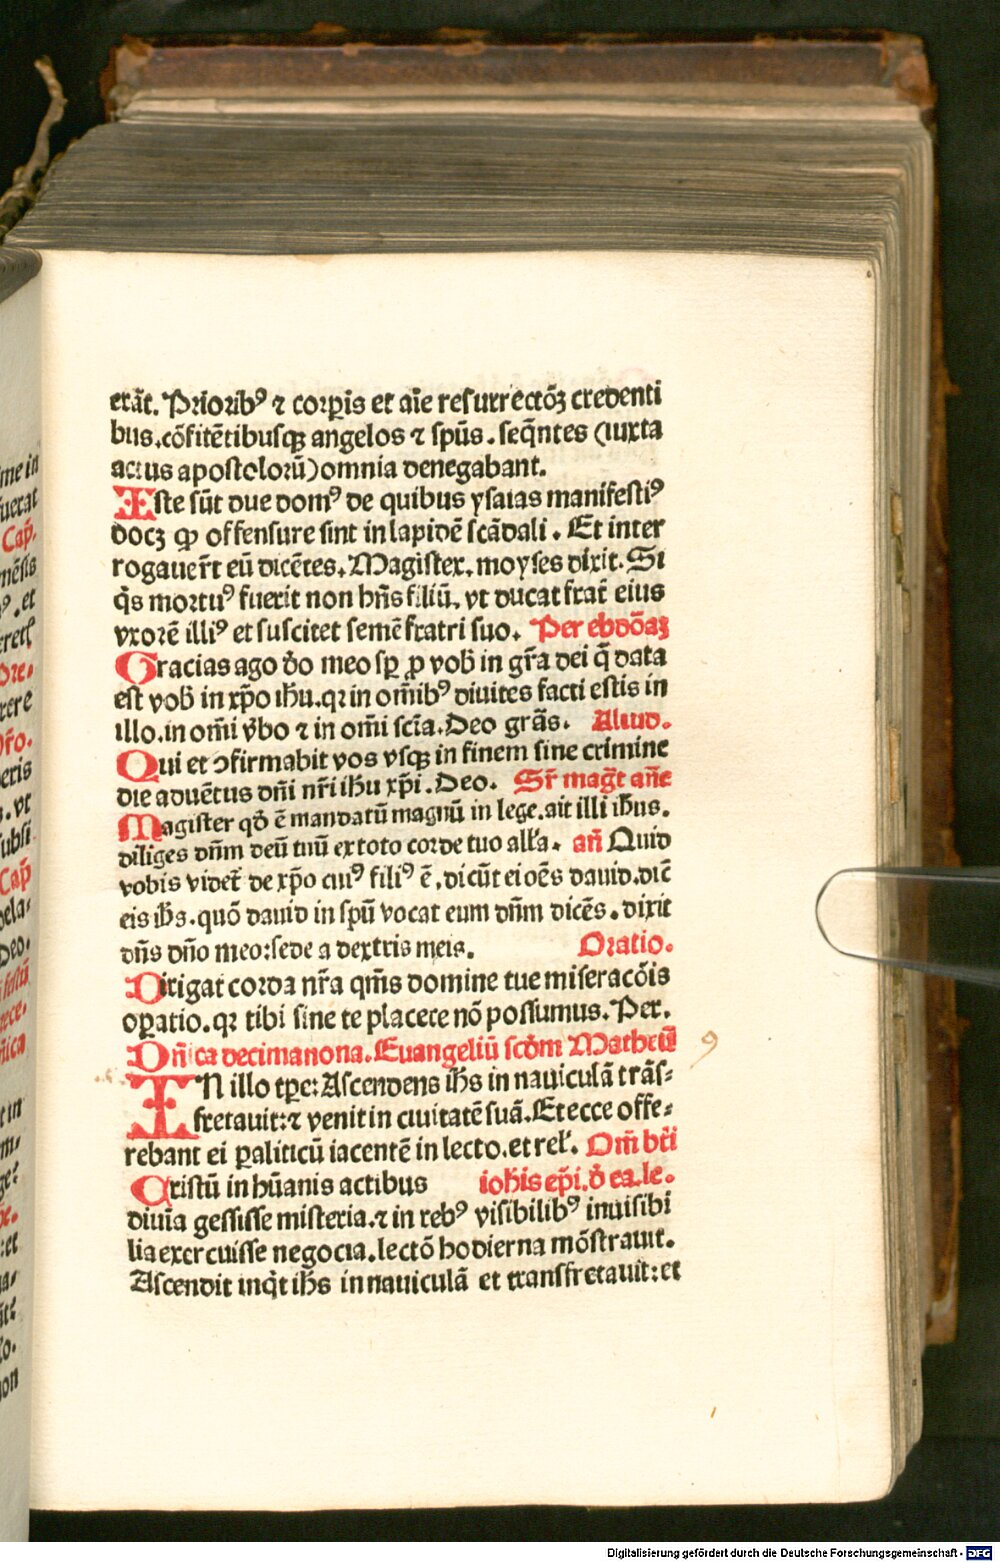 erãt. Priorib⁹ ⁊ corꝑis et aīe resurrectōꝫ credenti
bus.cōfitētibusqꝫ angelos ⁊ spūs. seq̄ntes (iuxta
actus apostolorū) omnia denegabant.
Iste sūt due dom⁹ de quibus ysaias manifesti⁹
docꝫ ꝙ offensure sint in lapidē scādali. Et inter
rogauer̄t eū dicētes. Magister. moyses dixit. Si
q̄s mortu⁹ fuerit non hn̄s filiū. vt ducat frat̄ eius
vxorē illi⁹ et suscitet semē fratri suo. Per ebdōaꝫ
Gracias ago d̄o meo sꝑ ꝓ vob̄ in gr̄a dei q̄ data
est vob̄ in xp̄o ih̄u.qꝛ in om̄ib⁹ diuites facti estis in
illo.in om̄i v̄bo ⁊ in om̄i scīa. Deo grās. Aliud.
Qui et ↄfirmabit vos vsqꝫ in finem sine crimine
die aduētus dn̄i nr̄i ih̄u xp̄i. Deo. Sr̄ maḡt an̄e
Magister qd̄ ē mandatū magnū in lege.ait illi ih̄us.
diliges dn̄m deū tuū ex toto corde tuo all'a. an̄ Quid
vobis videt̄ de xp̄o cui⁹ fili⁹ ē, dicūt ei oēs dauid.dic̄
eis ih̄s.quō dauid in spū vocat eum dn̄m dicēs. dixit
dn̄s dn̄o meo:sede a dextris meis. Oratio.
Dirigat corda nr̄a qm̄s domine tue miseracōis
oꝑatio.qꝛ tibi sine te placere nō possumus. Per.
Dn̄ica decimanona. Euangeliū scd̄m Matheū
IN illo tꝑe: Ascendens ih̄s in nauiculā trās⸗
fretauit:⁊ venit in ciuitatē suā. Et ecce offe⸗
rebant ei ꝑaliticū iacentē in lecto. et rel'. Om̄ bt̄i
Cristū in hūanis actibus ioh̄is ep̄i. d̄ ea. le.
diuīa gessisse misteria.⁊ in reb⁹ visibilib⁹ inuisibi
lia exercuisse negocia.lectō hodierna mōstrauit.
Ascendit inq̄t ih̄s in nauiculā et transfretauit:et
Digitalisierung gefördert durch die Deutsche Forschungsgemeinschaft - DFG